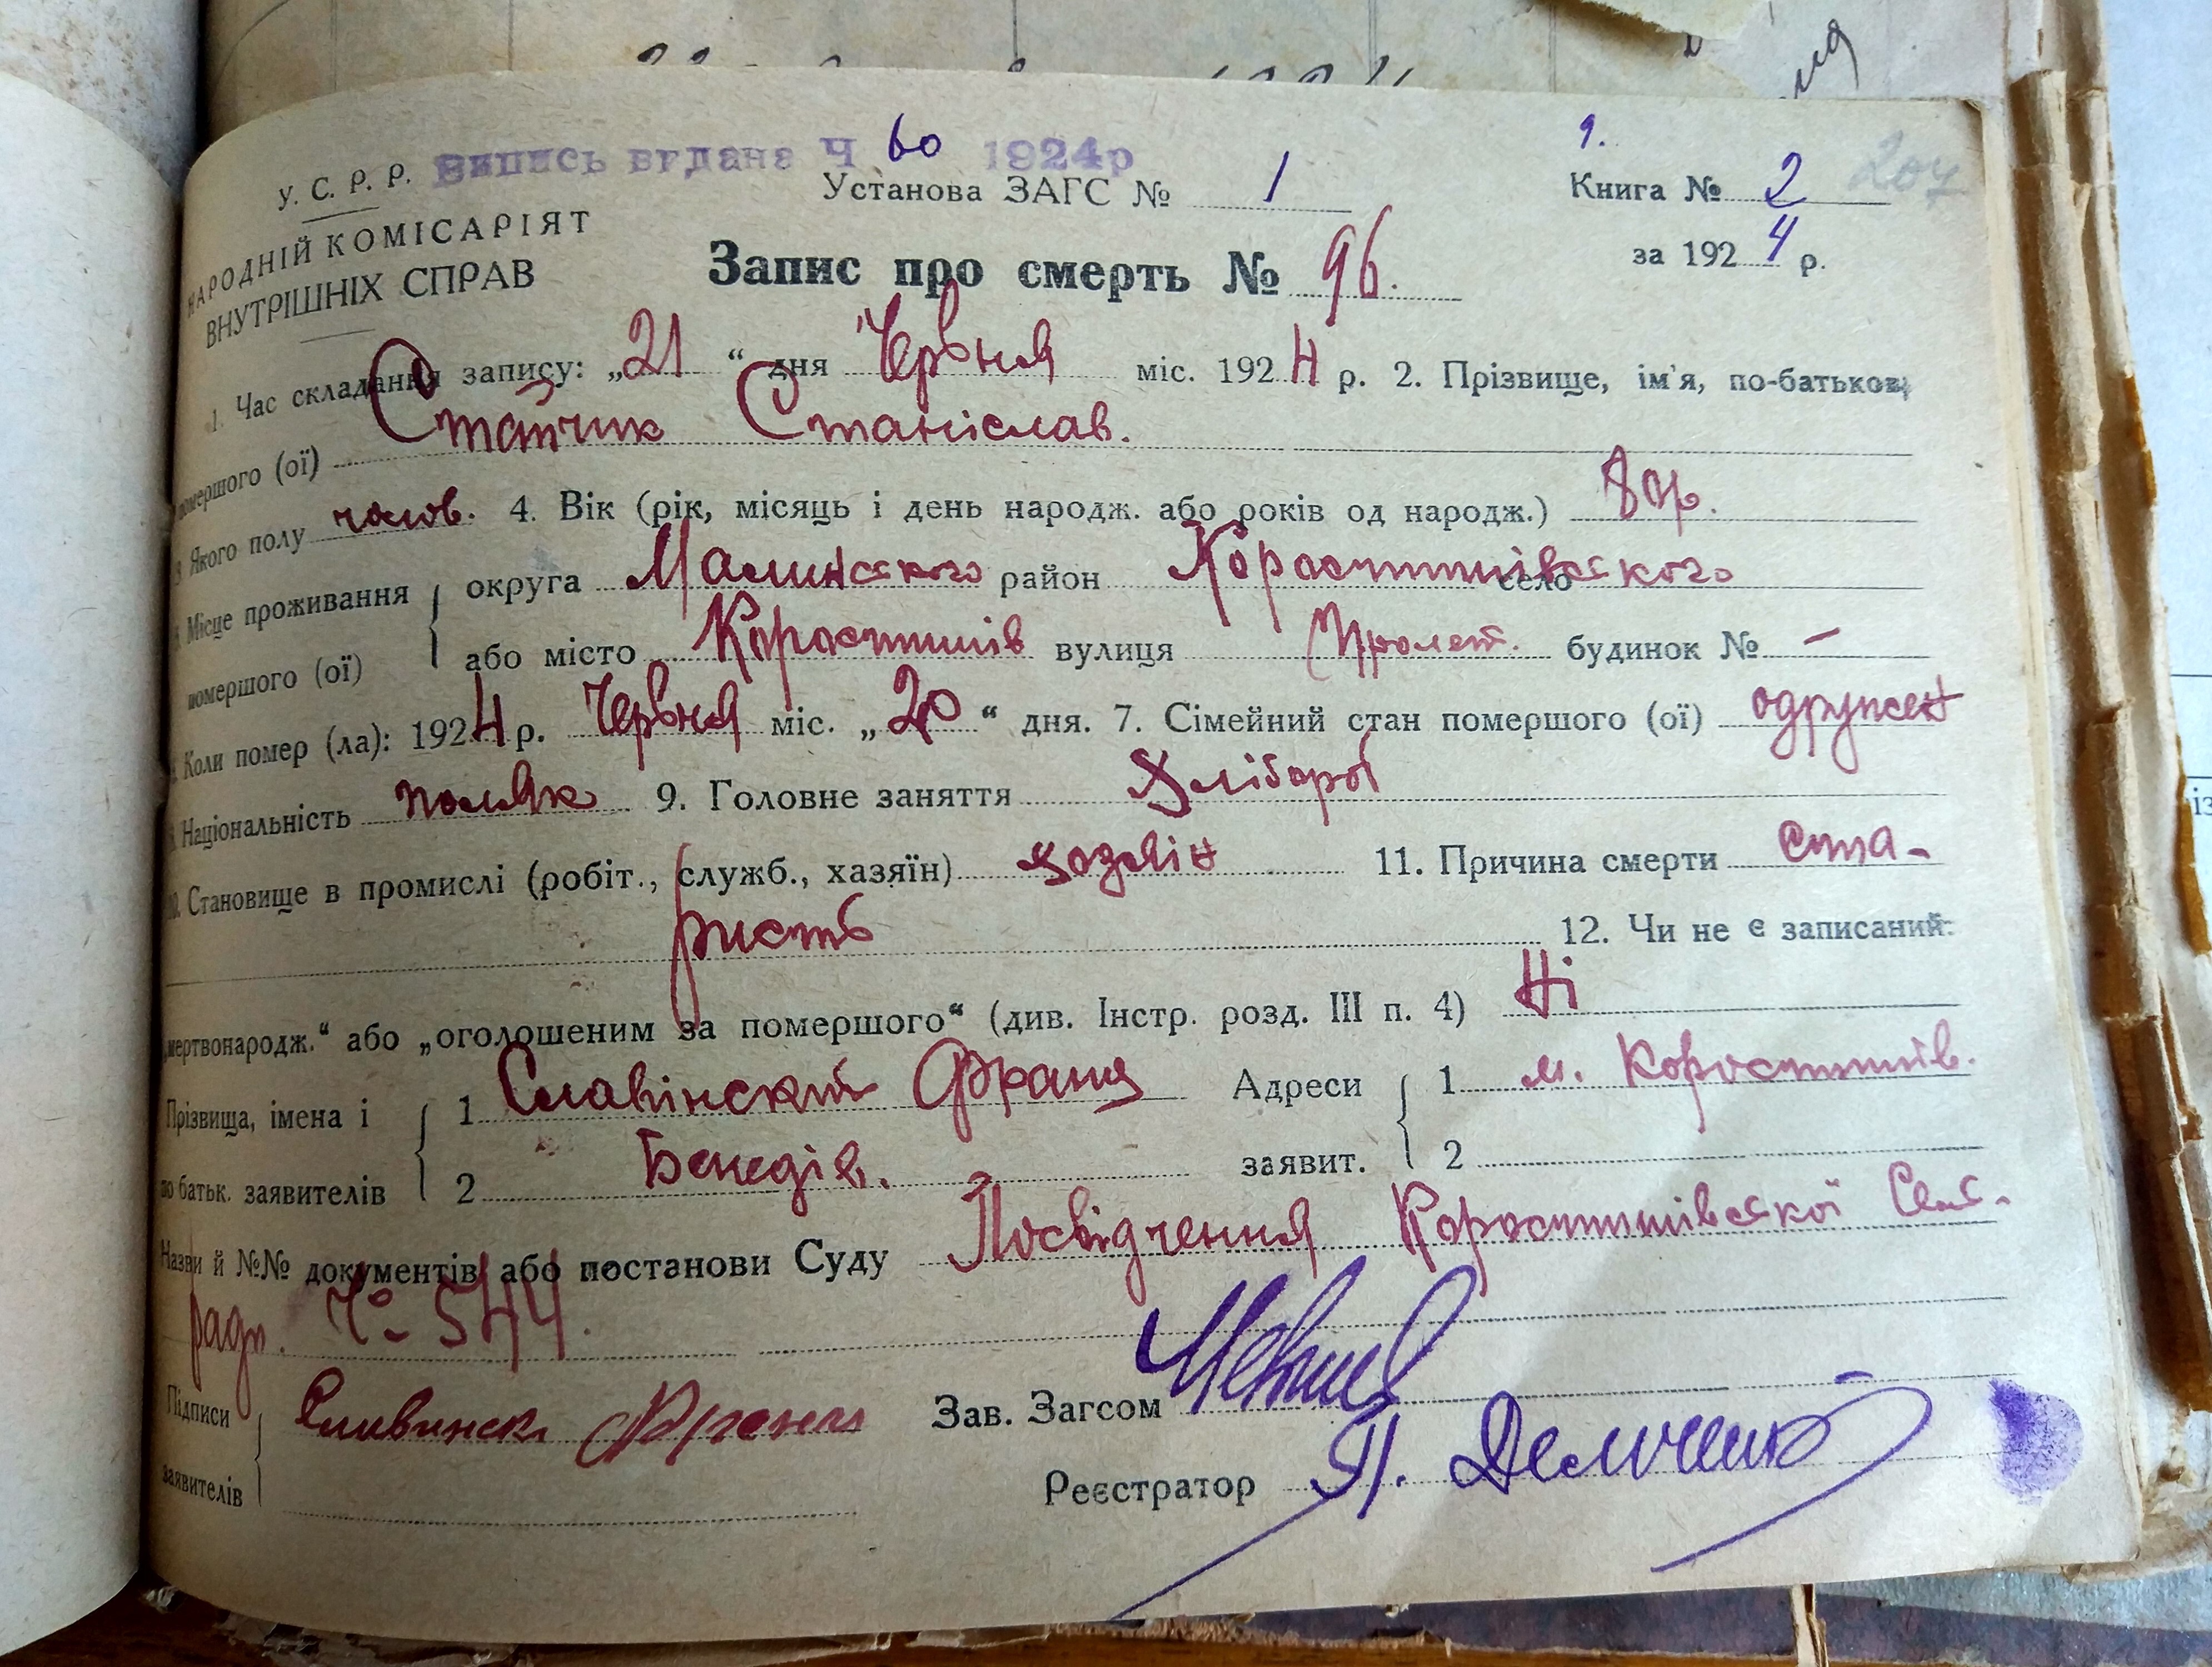 У. С. Р. Р. Випись видана Ч 60 1924р
НАРОДНІЙ КОМІСАРІЯТ
ВНУТРІШНІХ СПРАВ
Установа ЗАГС № 1
9.
Книга № 2 207
за 1924 р.
Запис про смерть № 96.
1. Час складання запису: „21“ дня Червня міс. 1924 р. 2. Прізвище, ім'я, по-батькові
помершого (ої) Стайчик Станіслав.
3 Якого полу чолов. 4. Вік (рік, місяць і день народж. або років од народж.) 80р.
Місце проживання помершого (ої) округа Малинського район Коростишівського село
або місто Коростишів вулиця Пролет. будинок № –
Коли помер (ла): 1924 р. Червня міс. „20“ дня. 7. Сімейний стан помершого (ої) одружен
Національність поляк 9. Головне заняття Хлібороб
10. Становище в промислі (робіт., служб., хазяїн) хозяін 11. Причина смерти ста-
ристь 12. Чи не є записаний:
„мертвонародж.“ або „оголошеним за помершого“ (див. Інстр. розд. III п. 4) Ні
Прізвища, імена і 1 Славінский Франц Адреси 1 м. Коростишів.
по батьк. заявителів 2 Бенедів. заявит. 2
Назви й №№ документів або постанови Суду Посвідчення Коростишівської Сел.
ради. Ч– 544.
Підписи Славинск Франц Зав. Загсом
заявителів Реєстратор П. Демченко